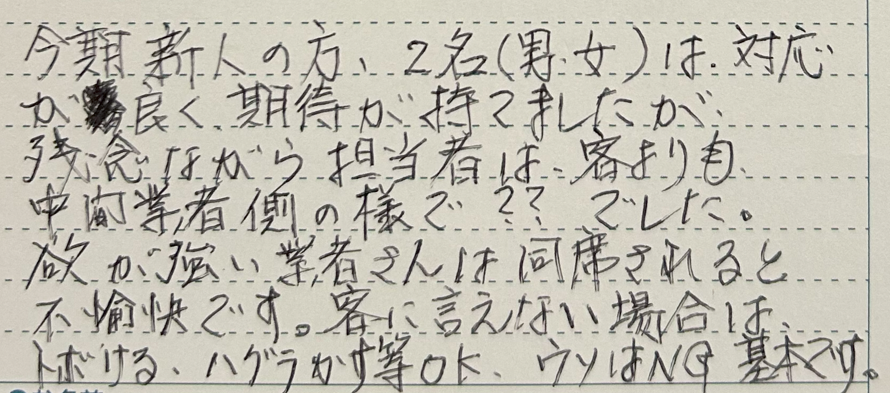 今期新人の方、2名(男・女)は、対応
が良く、期待が持てましたが、
残念ながら担当者は、客よりも、
中間業者側の様で??でした。
欲が強い業者さんは同席されると
不愉快です。客に言えない場合は、
トボける、ハグラかす等OK、ウソはNG基本です。